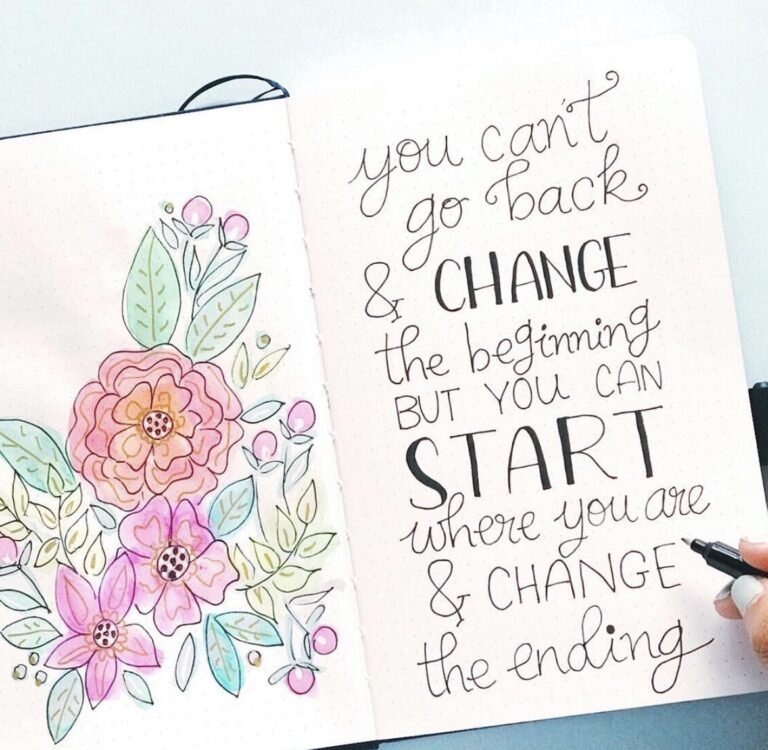 you can't
go back
& CHANGE
the beginning
BUT YOU CAN
START
where you are
& CHANGE
the ending